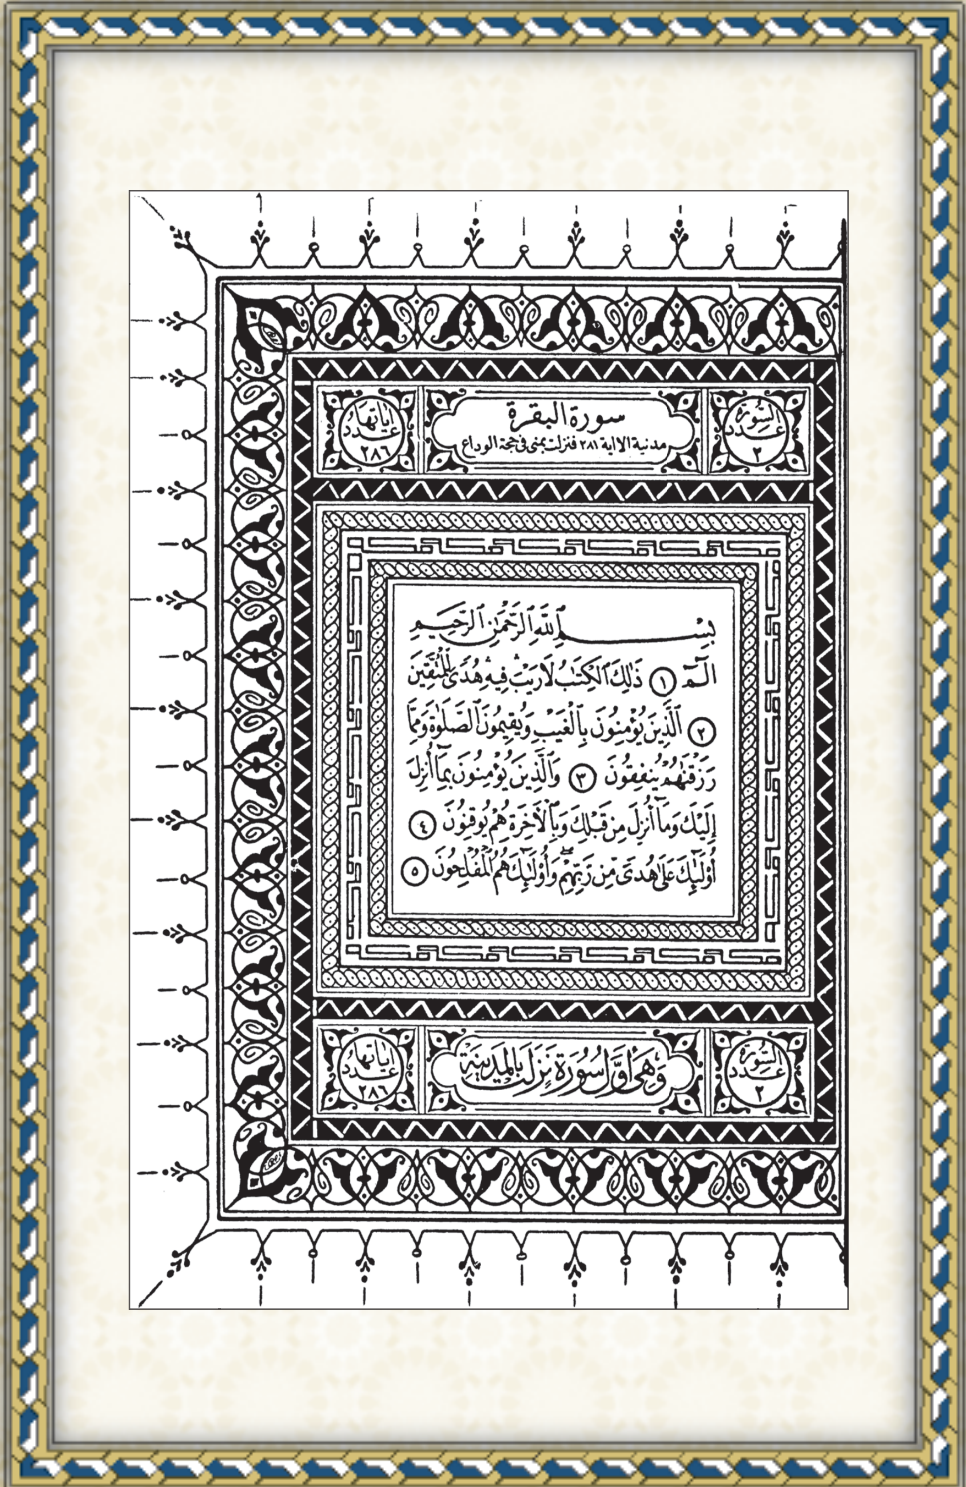 السورة
عدد
٢
سورة البقرة
مدنية الا اية ٢٨١ فنزلت بمنى في حجة الوداع
اياتها
عدد
٢٨٦
بِسْمِ ٱللَّهِ ٱلرَّحْمَٰنِ ٱلرَّحِيمِ
الٓمٓ ١ ذَٰلِكَ ٱلْكِتَٰبُ لَا رَيْبَ فِيهِ هُدًى لِّلْمُتَّقِينَ
٢ ٱلَّذِينَ يُؤْمِنُونَ بِٱلْغَيْبِ وَيُقِيمُونَ ٱلصَّلَوٰةَ وَمِمَّا
رَزَقْنَٰهُمْ يُنفِقُونَ ٣ وَٱلَّذِينَ يُؤْمِنُونَ بِمَآ أُنزِلَ
إِلَيْكَ وَمَآ أُنزِلَ مِن قَبْلِكَ وَبِٱلْأَخِرَةِ هُمْ يُوقِنُونَ ٤
أُوْلَٰٓئِكَ عَلَىٰ هُدًى مِّن رَّبِّهِمْ ۖ وَأُوْلَٰٓئِكَ هُمُ ٱلْمُفْلِحُونَ ٥
السورة
عدد
٢
وَهِيَ أَوَّلُ سُورَةٍ نَزَلَتْ بِالْمَدِينَةِ
اياتها
عدد
٢٨٦